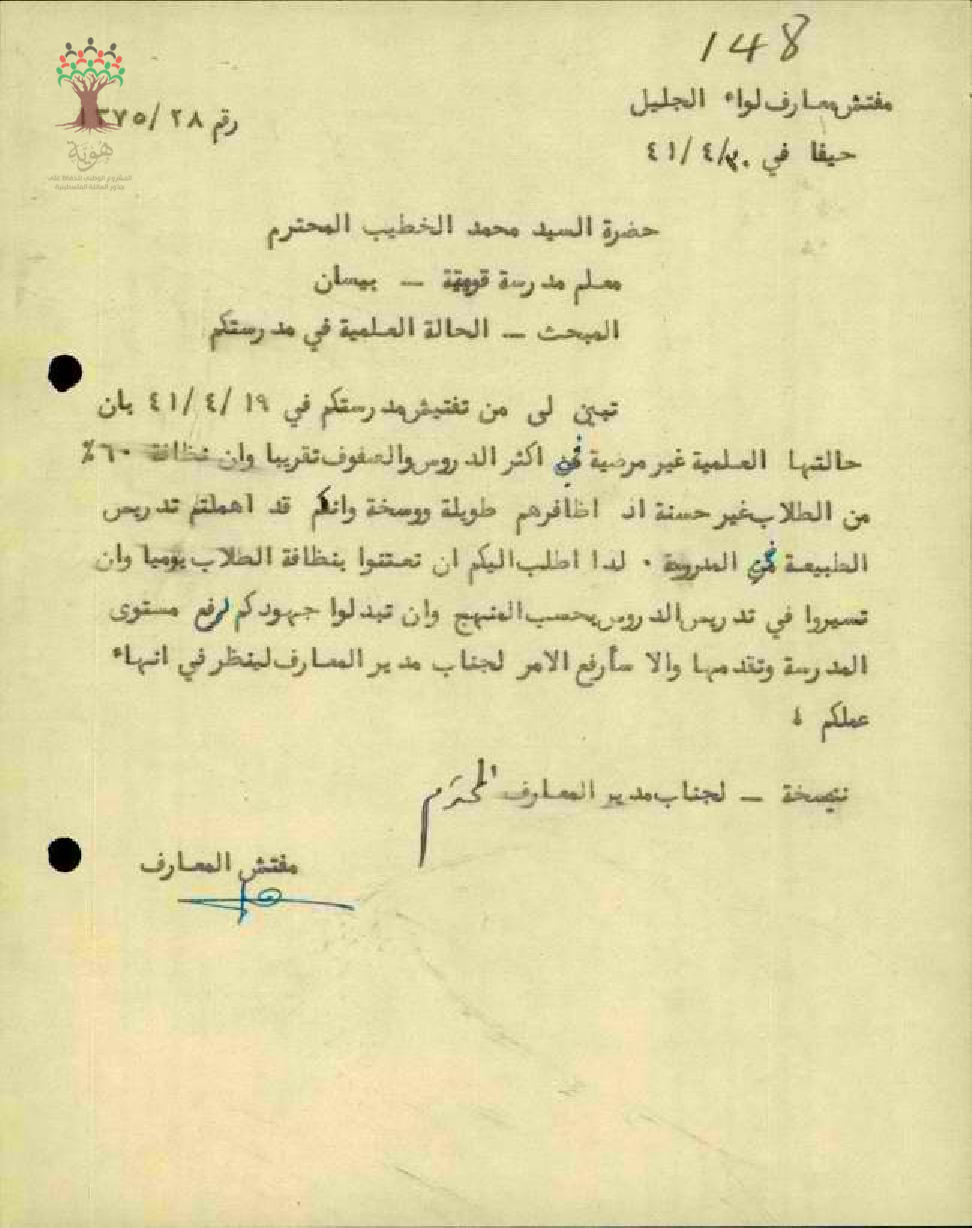 148
مفتش معارف لواء الجليل
رقم ٢٨/ ١٣٧٥
حيفا في ٤١/٤/٣٠
هوية
المشروع الوطني للحفاظ على
جذور العائلة الفلسطينية
حضرة السيد محمد الخطيب المحترم
معلم مدرسة قومية – بيسان
المبحث – الحالة العلمية في مدرستكم
تبين لي من تفتيش مدرستكم في ١٩ /٤ /٤١ بان
حالتها العلمية غير مرضية في اكثر الدروس والصفوف تقريبا وان نظافة ٦٠٪
من الطلاب غير حسنة اذ اظافرهم طويلة ووسخة وانكم قد اهملتم تدريس
الطبيعة في المدرسة ٠ لذا اطلب اليكم ان تعتنوا بنظافة الطلاب يوميا وان
تسيروا في تدريس الدروس بحسب المنهج وان تبذلوا جهودكم لرفع مستوى
المدرسة وتقدمها والا سأرفع الامر لجناب مدير المعارف لينظر في انهاء
عملكم
نسخة – لجناب مدير المعارف المحترم
مفتش المعارف